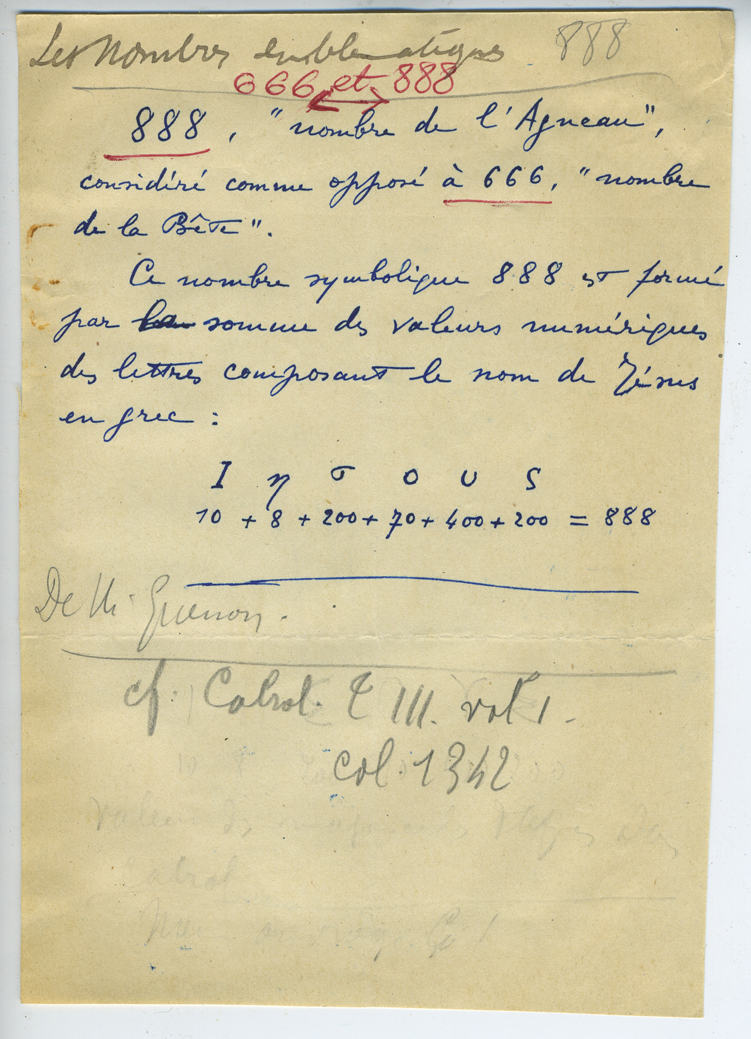 Les Nombres emblématiques 888
666 et 888
888, "nombre de l'Agneau",
considéré comme opposé à 666, "nombre
de la Bête".
Ce nombre symbolique 888 est formé
par la somme des valeurs numériques
des lettres composant le nom de Jésus
en grec :
I η σ ο υ ς
10 + 8 + 200 + 70 + 400 + 200 = 888
De M. Guenon.
cf. Cabrol. T III. vol 1.
col. 1342
Cabrol